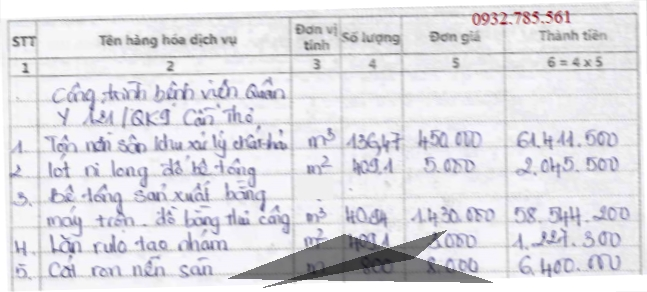 0932.785.561
STT Tên hàng hóa dịch vụ Đơn vị tính Số lượng Đơn giá Thành tiền
1 2 3 4 5 6 = 4 x 5
Công trình bệnh viện Quân
Y 121/QK9 Cần Thơ
1. Tôn nền sân khu xử lý chất thải m³ 136,47 450.000 61.411.500
2 lót ni long đổ bê tông m² 409,1 5.000 2.045.500
3. Bê tông sản xuất bằng
máy trộn đổ bằng thủ công m³ 40,94 1.430.000 58.544.200
4. Lăn rulo tạo nhám m² 409,1 3.000 1.227.300
5. Cắt ron nền sân 800 8.000 6.400.000